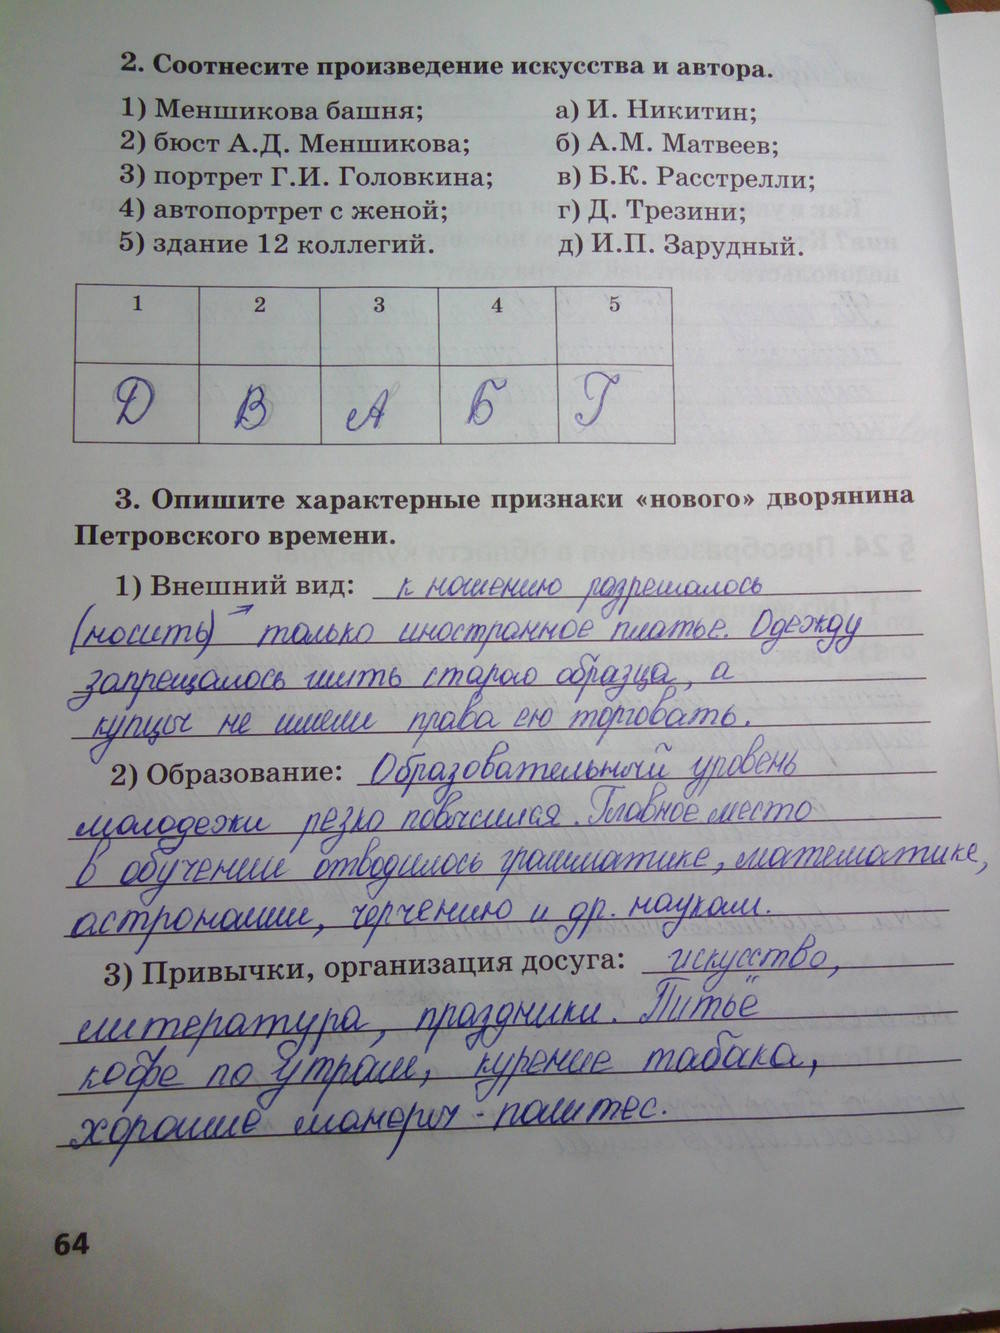 2. Соотнесите произведение искусства и автора.
1) Меншикова башня; а) И. Никитин;
2) бюст А.Д. Меншикова; б) А.М. Матвеев;
3) портрет Г.И. Головкина; в) Б.К. Расстрелли;
4) автопортрет с женой; г) Д. Трезини;
5) здание 12 коллегий. д) И.П. Зарудный.
1 2 3 4 5
Д В А Б Г
3. Опишите характерные признаки «нового» дворянина
Петровского времени.
1) Внешний вид: к ношению разрешалось
(носить) → только иностранное платье. Одежду
запрещалось шить старого образца, а
купцы не имели права ею торговать.
2) Образование: Образовательный уровень
молодежи резко повысился. Главное место
в обучении отводилось грамматике, математике,
астрономии, черчению и др. наукам.
3) Привычки, организация досуга: искусство,
литература, праздники. Питьё
кофе по утрам, курение табака,
хорошие манеры - политес.
64